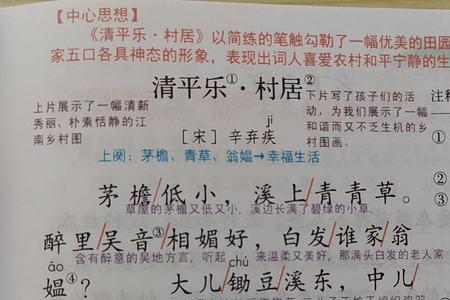 【中心思想】
《清平乐·村居》以简练的笔触勾勒了一幅优美的田园
家五口各具神态的形象，表现出词人喜爱农村和平宁静的生
清平乐①·村居②
上片展示了一幅清新
秀丽、朴素恬静的江
南乡村图
下片写了孩子们的活
动，为我们展示了一幅
和谐而又不乏生机的乡
村图画。
注释
①
jí
［宋］辛弃疾
上阕：茅檐、青草、翁媪→幸福生活
②
茅檐/低小，溪上/青青草。
③
草屋的茅檐又低又小，溪边长满了碧绿的小草。
醉里/吴音③/相媚好，白发/谁家/翁
含有醉意的吴地方言，听起来温柔又美好，那满头白发的老人家
ǎo
chú
媪④？ 大儿/锄豆/溪东，中儿/